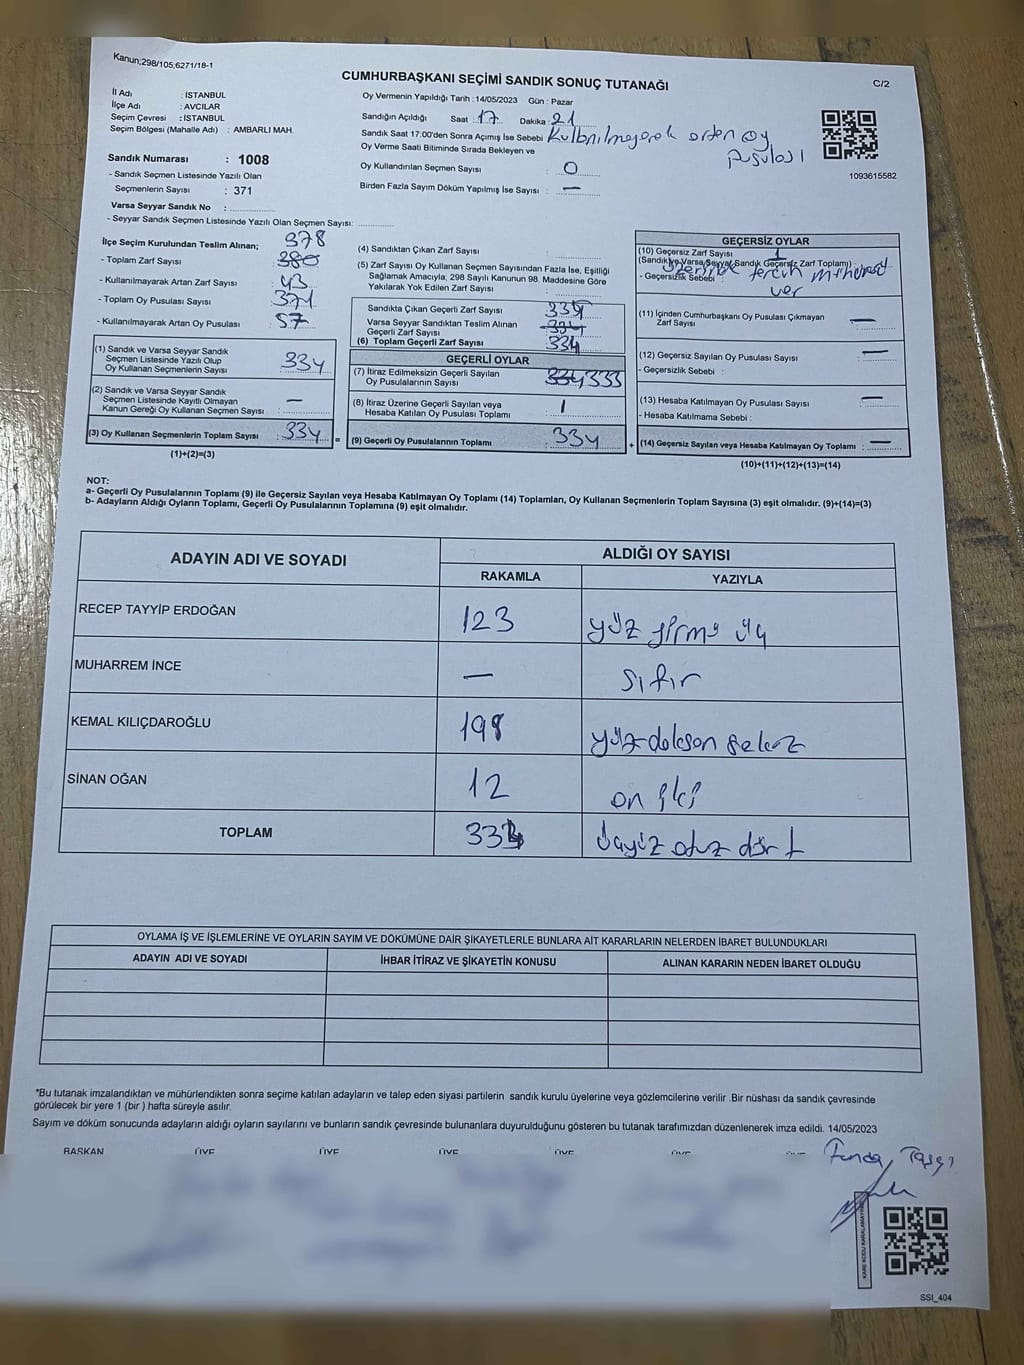 Kanun;298/105;6271/18-1
CUMHURBAŞKANI SEÇİMİ SANDIK SONUÇ TUTANAĞI
C/2
İl Adı : İSTANBUL
İlçe Adı : AVCILAR
Seçim Çevresi : İSTANBUL
Seçim Bölgesi (Mahalle Adı) : AMBARLI MAH.
Sandık Numarası : 1008
- Sandık Seçmen Listesinde Yazılı Olan
Seçmenlerin Sayısı : 371
Varsa Seyyar Sandık No :
- Seyyar Sandık Seçmen Listesinde Yazılı Olan Seçmen Sayısı:
Oy Vermenin Yapıldığı Tarih : 14/05/2023 Gün : Pazar
Sandığın Açıldığı Saat : 17 Dakika : 21
Sandık Saat 17:00'den Sonra Açımış İse Sebebi Kullanılmayarak artan oy
pusulası
Oy Verme Saati Bitiminde Sırada Bekleyen ve
Oy Kullandırılan Seçmen Sayısı : 0
Birden Fazla Sayım Döküm Yapılmış İse Sayısı : —
1093615582
İlçe Seçim Kurulundan Teslim Alınan;
378
- Toplam Zarf Sayısı : 380
- Kullanılmayarak Artan Zarf Sayısı : 43
- Toplam Oy Pusulası Sayısı : 371
- Kullanılmayarak Artan Oy Pusulası : 57
(1) Sandık ve Varsa Seyyar Sandık
Seçmen Listesinde Yazılı Olup
Oy Kullanan Seçmenlerin Sayısı : 334
(2) Sandık ve Varsa Seyyar Sandık
Seçmen Listesinde Kayıtlı Olmayan
Kanun Gereği Oy Kullanan Seçmen Sayısı : —
(3) Oy Kullanan Seçmenlerin Toplam Sayısı : 334 =
(1)+(2)=(3)
(4) Sandıktan Çıkan Zarf Sayısı :
(5) Zarf Sayısı Oy Kullanan Seçmen Sayısından Fazla İse, Eşitliği
Sağlamak Amacıyla; 298 Sayılı Kanunun 98. Maddesine Göre
Yakılarak Yok Edilen Zarf Sayısı :
Sandıkta Çıkan Geçerli Zarf Sayısı : 334
Varsa Seyyar Sandıktan Teslim Alınan
Geçerli Zarf Sayısı : 334
(6) Toplam Geçerli Zarf Sayısı : 334
GEÇERLİ OYLAR
(7) İtiraz Edilmeksizin Geçerli Sayılan
Oy Pusulalarının Sayısı : 334 333
(8) İtiraz Üzerine Geçerli Sayılan veya
Hesaba Katılan Oy Pusulası Toplamı : 1
(9) Geçerli Oy Pusulalarının Toplamı : 334 +
GEÇERSİZ OYLAR
(10) Geçersiz Zarf Sayısı : 1
(Sandık ve Varsa Seyyar Sandık Geçersiz Zarf Toplamı)
- Geçersizlik Sebebi : üzerinde tercih mühürü
var
(11) İçinden Cumhurbaşkanı Oy Pusulası Çıkmayan
Zarf Sayısı : —
(12) Geçersiz Sayılan Oy Pusulası Sayısı : —
- Geçersizlik Sebebi :
(13) Hesaba Katılmayan Oy Pusulası Sayısı : —
- Hesaba Katılmama Sebebi :
(14) Geçersiz Sayılan veya Hesaba Katılmayan Oy Toplamı : —
(10)+(11)+(12)+(13)=(14)
NOT:
a- Geçerli Oy Pusulalarının Toplamı (9) ile Geçersiz Sayılan veya Hesaba Katılmayan Oy Toplamı (14) Toplamları, Oy Kullanan Seçmenlerin Toplam Sayısına (3) eşit olmalıdır. (9)+(14)=(3)
b- Adayların Aldığı Oyların Toplamı, Geçerli Oy Pusulalarının Toplamına (9) eşit olmalıdır.
ADAYIN ADI VE SOYADI ALDIĞI OY SAYISI
RAKAMLA YAZIYLA
RECEP TAYYİP ERDOĞAN 123 yüz yirmi üç
MUHARREM İNCE — sıfır
KEMAL KILIÇDAROĞLU 198 yüz doksan sekiz
SİNAN OĞAN 12 on iki
TOPLAM 334 üçyüz otuz dört
OYLAMA İŞ VE İŞLEMLERİNE VE OYLARIN SAYIM VE DÖKÜMÜNE DAİR ŞİKAYETLERLE BUNLARA AİT KARARLARIN NELERDEN İBARET BULUNDUKLARI
ADAYIN ADI VE SOYADI İHBAR İTİRAZ VE ŞİKAYETİN KONUSU ALINAN KARARIN NEDEN İBARET OLDUĞU
*Bu tutanak imzalandıktan ve mühürlendikten sonra seçime katılan adayların ve talep eden siyasi partilerin sandık kurulu üyelerine veya gözlemcilerine verilir .Bir nüshası da sandık çevresinde
görülecek bir yere 1 (bir ) hafta süreyle asılır.
Sayım ve döküm sonucunda adayların aldığı oyların sayılarını ve bunların sandık çevresinde bulunanlara duyurulduğunu gösteren bu tutanak tarafımızdan düzenlenerek imza edildi. 14/05/2023
BAŞKAN ÜYE ÜYE ÜYE ÜYE ÜYE ÜYE
Funda Taşçı
KARE KODU KARALAMAYINIZ
SSI_404